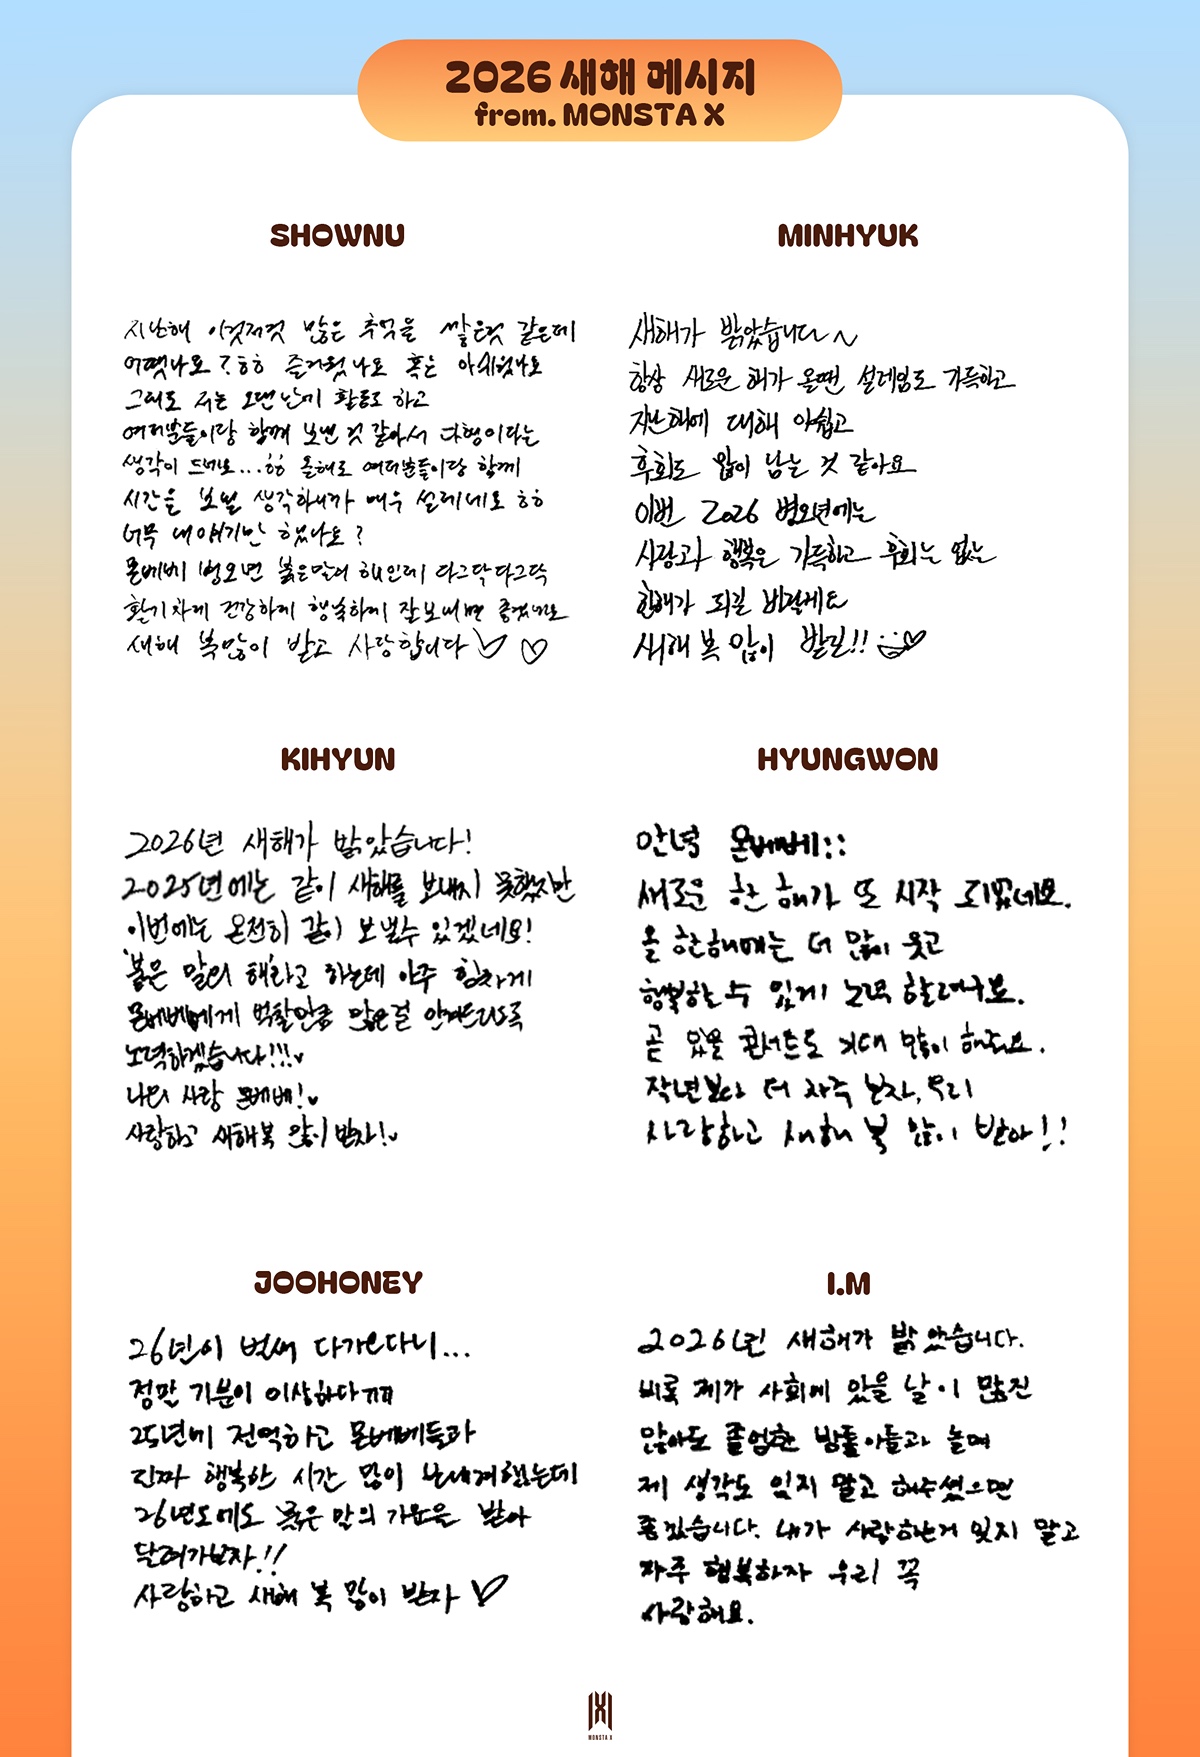 2026 새해 메시지
from. MONSTA X
SHOWNU
지난해 이것저것 많은 추억을 쌓은것 같은데
어땠나요? ㅎㅎ 즐거웠나요 혹은 아쉬웠나요
그래도 저는 오랜만에 활동도 하고
여러분들이랑 함께 보낸 것 같아서 다행이라는
생각이 드네요...ㅎㅎ 올해도 여러분들이랑 함께
시간을 보낼 생각하니까 매우 설레네요 ㅎㅎ
너무 내 얘기만 했나요?
몬베베 병오년 붉은말의 해인데 다그닥다그닥
활기차게 건강하게 행복하게 잘보내면 좋겠네요
새해 복많이 받고 사랑합니다
MINHYUK
새해가 밝았습니다~
항상 새로운 해가 올땐 설레임도 가득하고
지난해에 대해 아쉽고
후회도 많이 남는 것 같아요
이번 2026 병오년에는
사랑과 행복은 가득하고 후회는 없는
한해가 되길 바랄게요
새해 복 많이 받길!!
KIHYUN
2026년 새해가 밝았습니다!
2025년에는 같이 새해를 보내지 못했지만
이번에는 온전히 같이 보낼수 있겠네요!
'붉은 말의 해'라고 하는데 아주 힘차게
몬베베에게 벅찰만큼 많은걸 안겨드리도록
노력하겠습니다!!!♥
나의 사랑 몬베베!♥
사랑하고 새해복 많이 받자!♥
HYUNGWON
안녕 몬베베::
새로운 한 해가 또 시작 되었네요.
올 한해에는 더 많이 웃고
행복하는 수 있게 노력 할려구요.
곧 있을 콘서트도 기대 많이 해줘요.
작년보다 더 자주 보자, 우리
사랑하고 새해 복 많이 받아!!
JOOHONEY
26년이 벌써 다가온다니...
정말 기분이 이상하다ㅠㅠ
25년에 전역하고 몬베베들과
진짜 행복한 시간 많이 보내게했는데
26년도에도 붉은 말의 기운을 받아
달려가보자!!
사랑하고 새해 복 많이 받자 ♡
I.M
2026년 새해가 밝았습니다.
비록 제가 사회에 있을 날이 많진
않아도 졸업한 밤톨이들과 놀며
제 생각도 잊지 말고 해주셨으면
좋겠습니다. 내가 사랑하는거 잊지 말고
자주 행복하자 우리 꼭
사랑해요.
MONSTA X